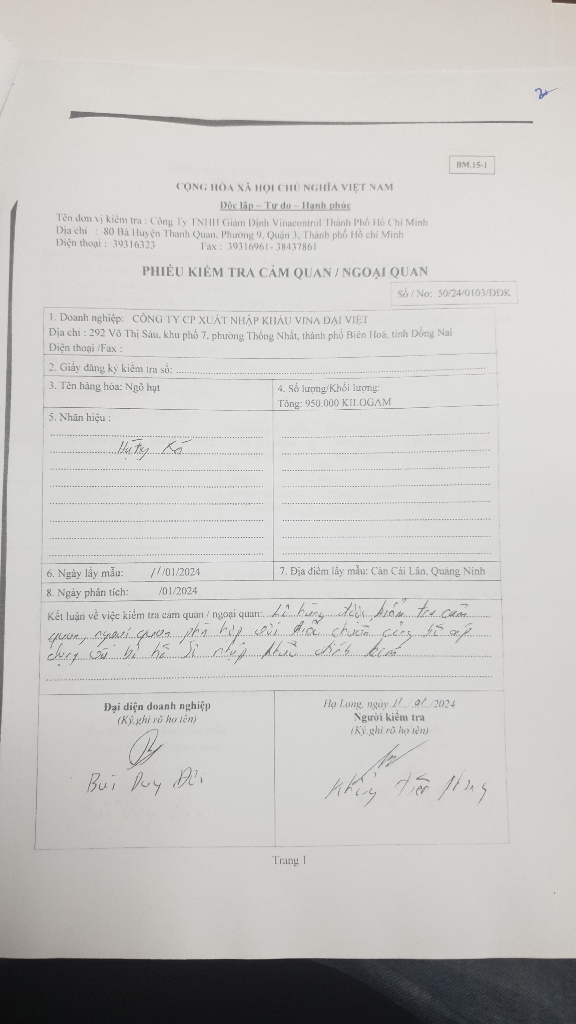 BM.15-1
CỘNG HÒA XÃ HỘI CHỦ NGHĨA VIỆT NAM
Độc lập – Tự do – Hạnh phúc
Tên đơn vị kiểm tra : Công Ty TNHH Giám Định Vinacontrol Thành Phố Hồ Chí Minh
Địa chỉ : 80 Bà Huyện Thanh Quan, Phường 9, Quận 3, Thành phố Hồ chí Minh
Điện thoại : 39316323 Fax : 39316961- 38437861
PHIẾU KIỂM TRA CẢM QUAN / NGOẠI QUAN
Số / No: 50/24/0103/ĐĐK
1. Doanh nghiệp: CÔNG TY CP XUẤT NHẬP KHẨU VINA ĐẠI VIỆT
Địa chỉ : 292 Võ Thị Sáu, khu phố 7, phường Thống Nhất, thành phố Biên Hoà, tỉnh Đồng Nai
Điện thoại /Fax :
2. Giấy đăng ký kiểm tra số:
3. Tên hàng hóa: Ngô hạt
4. Số lượng/Khối lượng:
Tổng: 950.000 KILOGAM
5. Nhãn hiệu :
6. Ngày lấy mẫu: 11/01/2024
7. Địa điểm lấy mẫu: Cản Cái Lân, Quảng Ninh
8. Ngày phân tích: /01/2024
Kết luận về việc kiểm tra cảm quan / ngoại quan: Lô hàng được kiểm tra cảm
quan, ngoại quan phù hợp với tiêu chuẩn công bố áp
dụng và hồ nhập khẩu kèm
Đại diện doanh nghiệp
(Ký,ghi rõ họ tên)
Bùi Duy
Hạ Long, ngày 11/01/2024
Người kiểm tra
(Ký,ghi rõ họ tên)
Tiến
Trang 1